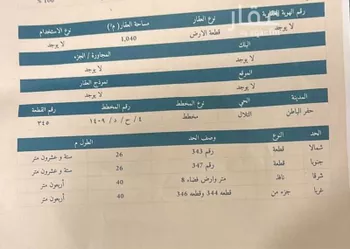 % 100
عقار
رقم الهوية العقارية نوع العقار مساحة العقار( م٢) نوع الاستخدام
لا يوجد قطعة الارض 1,040 لا يوجد
البلك المجاورة / الجزء
لا يوجد لا يوجد
المرفع نموذج العقار
لا يوجد لا يوجد
المدينة الحي نوع المخطط رقم المخطط رقم القطعة
حفر الباطن التلال مخطط ٤ / ح / د / ١٤٠٩ ٣٤٥
الحد النوع وصف الحد الطول م
شمالا قطعة رقم 343 26 ستة و عشرون متر
جنوبا قطعة رقم 347 26 ستة و عشرون متر
شرقا نافذ 8 متر وارض فضاء 40 أربعون متر
غربا جزء من قطعه 344 وقطعه 346 40 أربعون متر